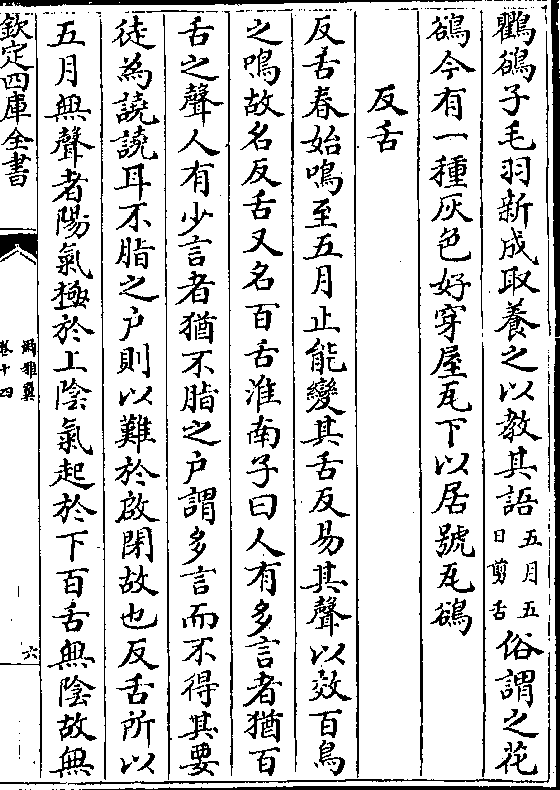 鸜鵒子毛羽新成取養之以教其語五月五日剪舌俗謂之花
鵒今有一種灰色好穿屋瓦下以居號瓦鵒
反舌
反舌春始鳴至五月止能變其舌反易其聲以效百鳥
之鳴故名反舌又名百舌淮南子曰人有多言者猶百
舌之聲人有少言者猶不脂之户謂多言而不得其要
徒為譊譊耳不脂之户則以難於啟閉故也反舌所以
五月無聲者陽氣極於上陰氣起於下百舌無陰故無
欽定四庫全書
爾雅翼
卷十四
六